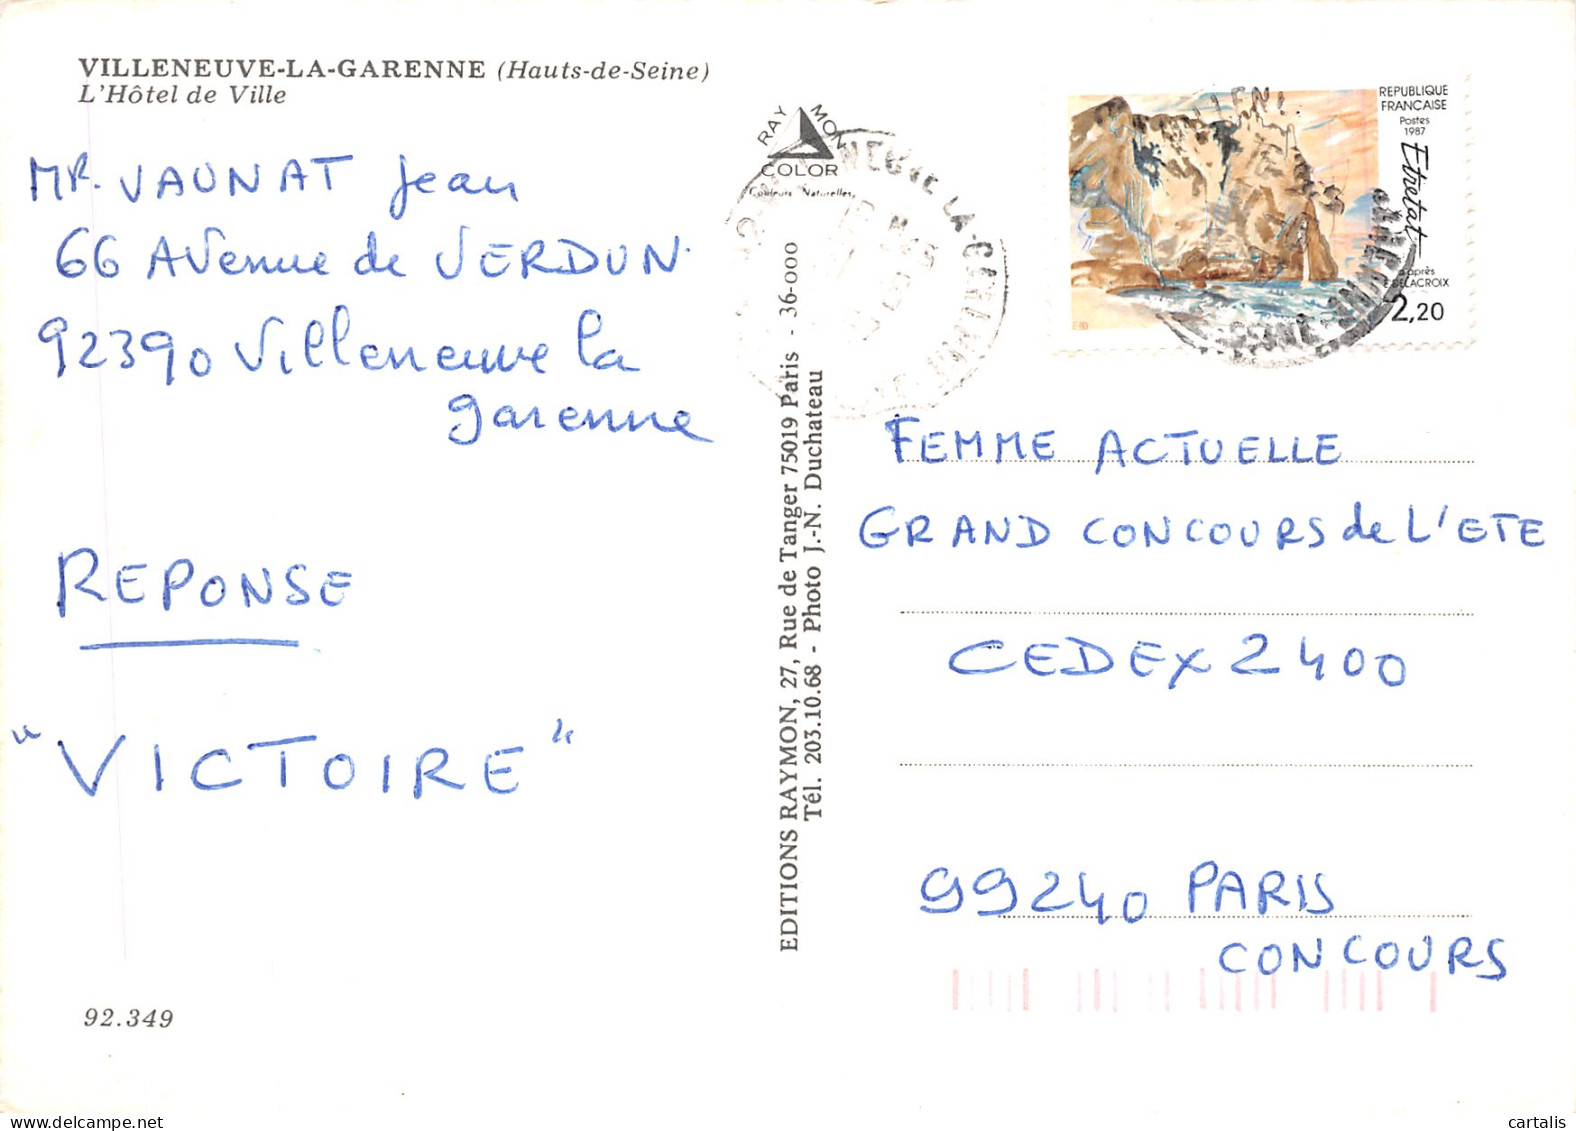 VILLENEUVE-LA-GARENNE (Hauts-de-Seine)
L'Hôtel de Ville
MR. VAUNAT Jean
66 Avenue de VERDUN
92390 Villeneuve la
garenne
REPONSE
"VICTOIRE"
92.349
RAYMON
COLOR
Couleurs Naturelles
EDITIONS RAYMON, 27, Rue de Tanger 75019 Paris - 36-000
Tél. 203.10.68 - Photo J.-N. Duchateau
REPUBLIQUE
FRANCAISE
Postes
1987
Etretat
d'après
E. DELACROIX
2,20
FEMME ACTUELLE
GRAND CONCOURS de L'ETE
CEDEX 2400
99240 PARIS
CONCOURS
cartalis